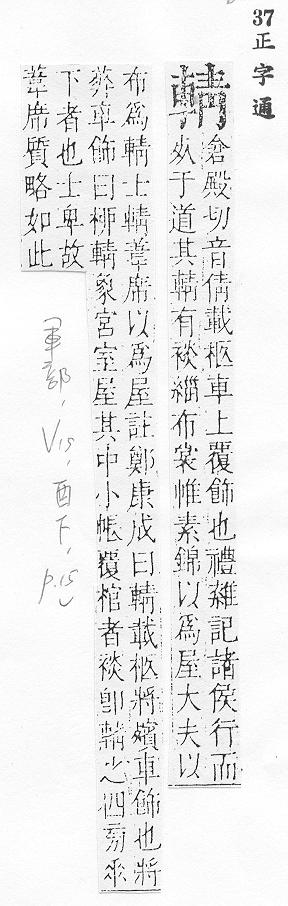 37 正字通
輤
倉殿切音倩載柩車上覆飾也禮雜記諸侯行而
死于道其輤有裧緇布裳帷素錦以爲屋大夫以
布爲輤士輤葦席以爲屋註鄭康成曰輤載柩將殯車飾也將
葬車飾曰柳輤象宮室屋其中小帳覆棺者裧卽輤之四旁垂
下者也士卑故
葦席質略如此
車部, V15, 酉下, p.15